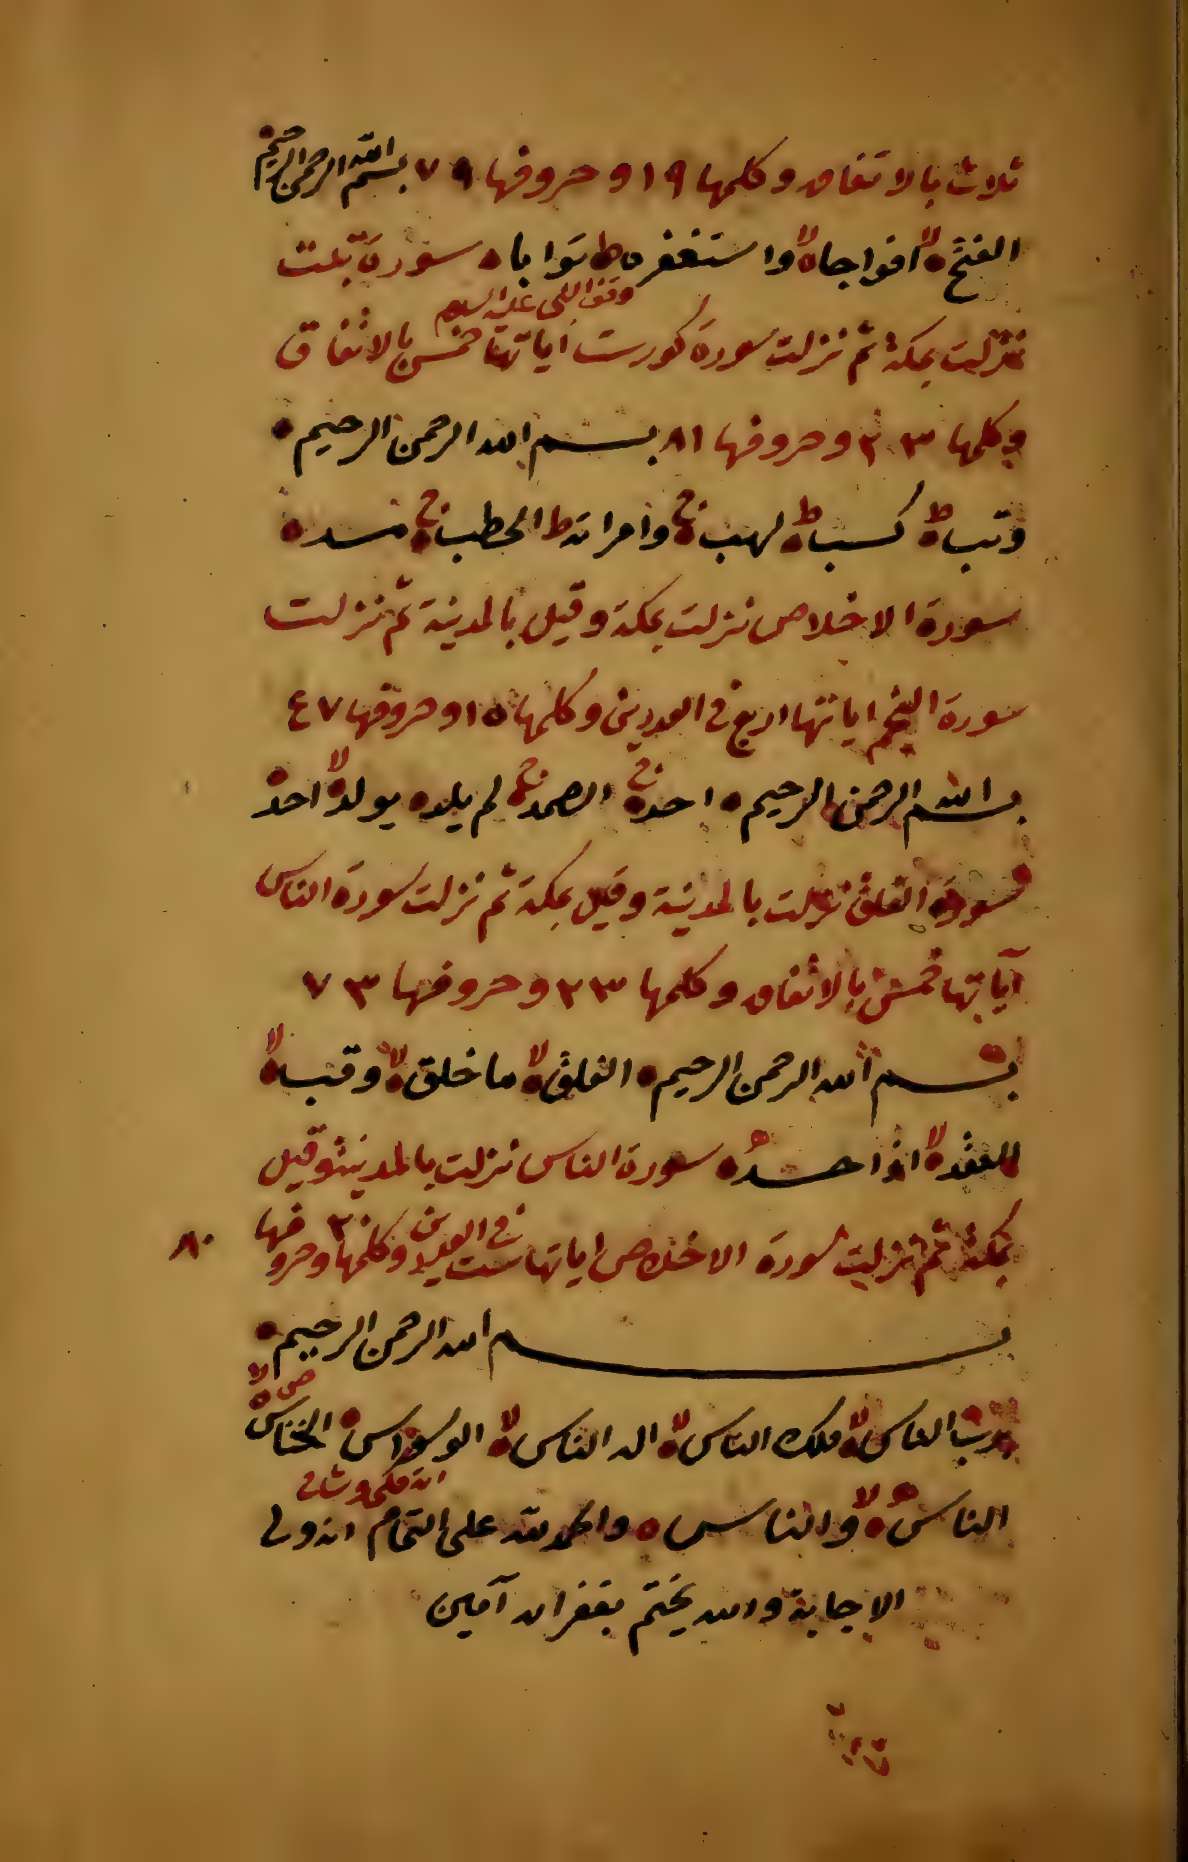 ثلاث بالاتفاق وكلمها ١٩ وحروفها ٧٩ بسم الله الرحمن الرحيم
الفتح لا افواجا لا واستغفره ط توابا ه سورة تبت
وقف النبي عليه السلام
نزلت بمكة ثم نزلت سورة كورت اياتها خمس بالاتفاق
وكلمها ٢٣ وحروفها ٨١ بسم الله الرحمن الرحيم
وتب ط كسب ط لهب ج وامراته ط الحطب ج مسد ه
سورة الاخلاص نزلت بمكة وقيل بالمدينة ثم نزلت
سورة النجم اياتها اربع في العددين وكلمها ١٥ وحروفها ٤٧
بسم الله الرحمن الرحيم احد ج الصمد ج لم يلد ه يولد لا احد
سورة الفلق نزلت بالمدينة وقيل بمكة ثم نزلت سورة الناس
آياتها خمس بالاتفاق وكلمها ٢٣ وحروفها ٧٣
بسم الله الرحمن الرحيم الفلق لا ما خلق لا وقب لا
العقد لا اذا حسد ه سورة الناس نزلت بالمدينة وقيل
بمكة ثم نزلت سورة الاخلاص اياتها ست في العددين وكلمها ٢٠ وحروفها ٨٠
بسم الله الرحمن الرحيم
برب الناس لا ملك الناس لا اله الناس لا الوسواس الخناس ص لا
الناس لا والناس ه والحمد لله على التمام انه ولي
الاجابة والله يختم بغفرانه آمين